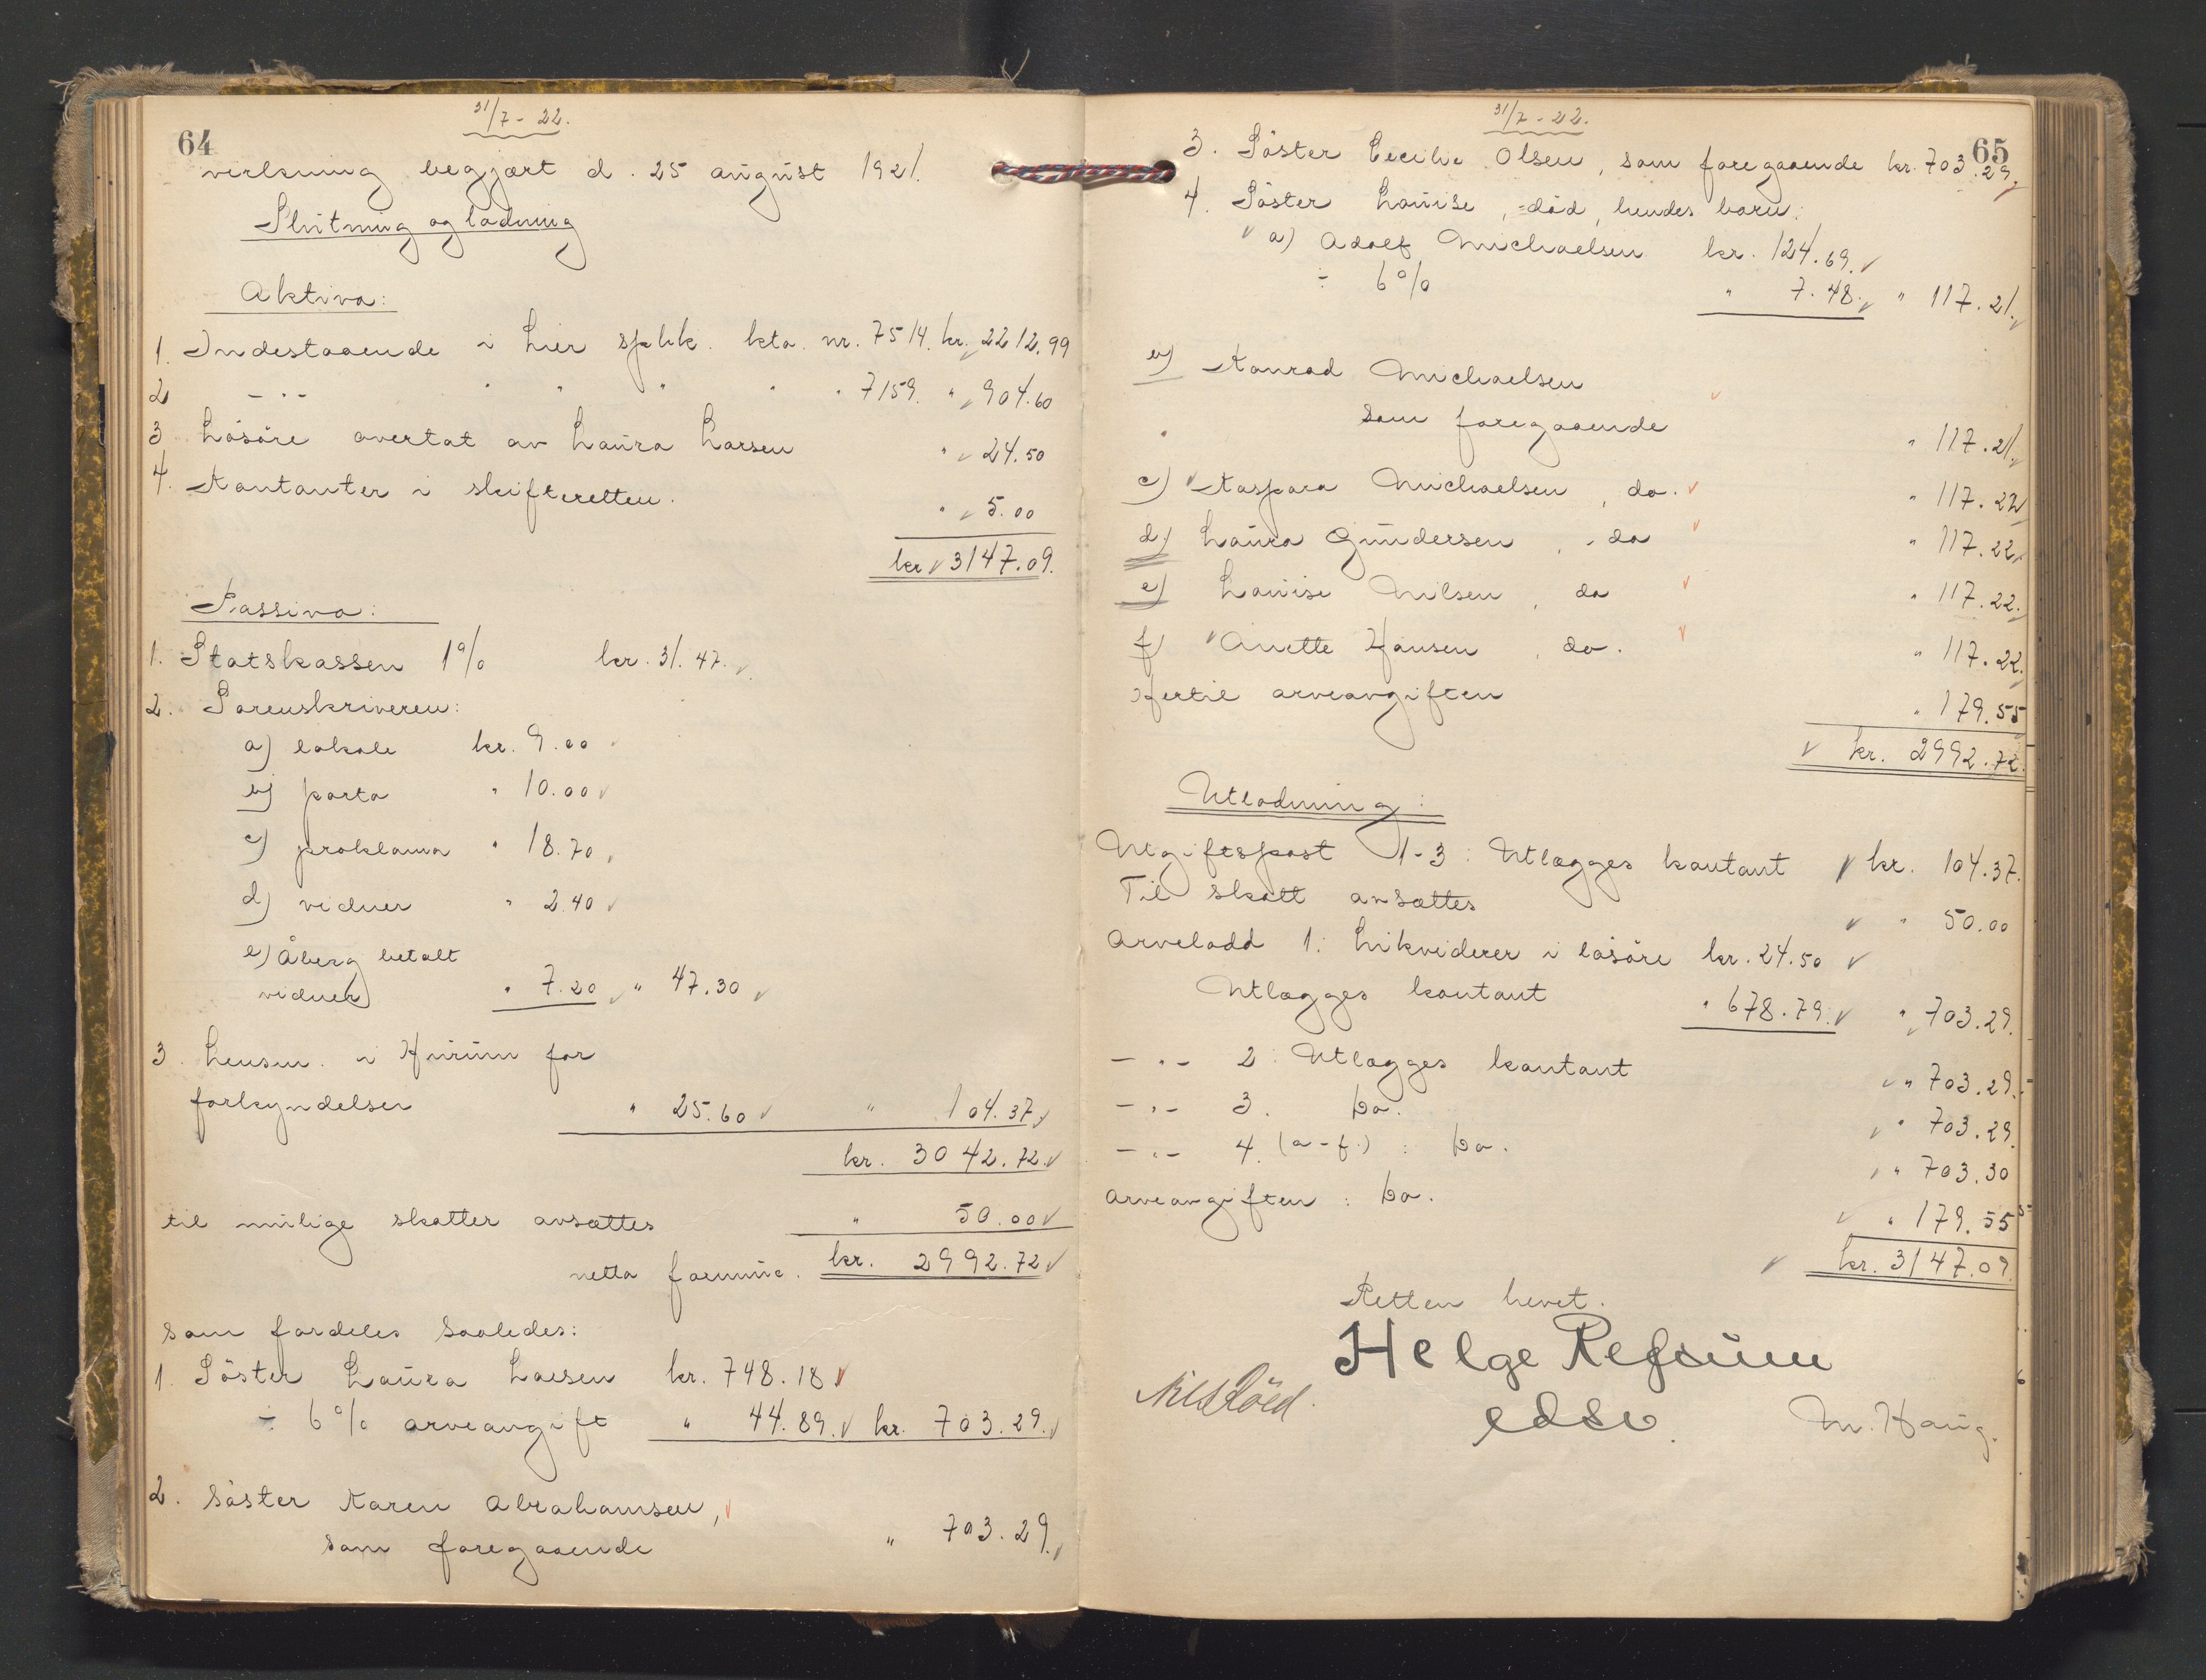 64
31/7 - 22.
virkning begjært d. 25 august 1921.
Slutning og lodning
Aktiva:
1. Indestaaende i Lier spbk. kto. nr. 7514. kr. 2212.99
2 - " - " " " " " 7159. " 904.60
3 Løsøre overtat av Laura Larsen " 24.50
4. Kontanter i skifteretten. " 5.00
kr 3147.09.
Passiva:
1. Statskassen 1% kr. 31.47.
2. Sorenskriveren:
a) lokale kr. 9.00
b) porto " 10.00
c) proklama " 18.70
d) vidner " 2.40
e) Åberg betalt
vidner " 7.20 " 47.30
3. Lensm. i Hurum for
forkyndelser " 25.60 " 104.37
kr. 3042.72
til mulige skatter avsættes " 50.00
netto formue. kr. 2992.72
som fordeles saaledes:
1. Søster Laura Larsen kr. 748.18
÷ 6% arveavgift " 44.89. kr. 703.29.
2. Søster Karen Abrahamsen,
som foregaaende " 703.29.
65
31/7 - 22.
3. Søster Cecilie Olsen, som foregaaende kr. 703.29.
4. Søster Louise, død, hendes barn:
a) Adolf Michaelsen kr. 124.69.
÷ 6% " 7.48. " 117.21.
b) Konrad Michaelsen
som foregaaende " 117.21.
c) Kaspara Michaelsen, do. " 117.22
d) Laura Gundersen, do " 117.22.
e) Louise Nilsen, do " 117.22.
f) Anette Hansen, do. " 117.22.
Hertil arveavgiften " 179.55
kr. 2992.72.
Utlodning:
Utgiftspost 1-3: Utlægges kontant kr. 104.37.
Til skatt avsættes " 50.00
Arvelodd 1: Likviderer i løsøre kr. 24.50
Utlægges kontant " 678.79. " 703.29.
- " - 2: Utlægges kontant " 703.29.
- " - 3. Do. " 703.29.
- " - 4. (a-f.): Do. " 703.30
Arveavgiften: Do. " 179.55
kr. 3147.09.
Retten hevet.
Helge Refsum
edsv.
Nils Röed.
M. Haug.